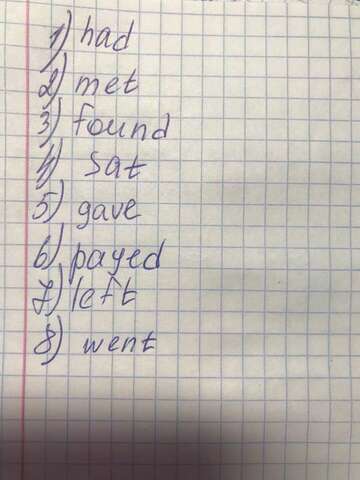 1) had
2) met
3) found
4) sat
5) gave
6) payed
7) left
8) went